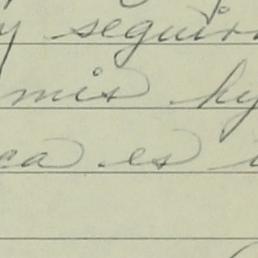 y seguir
mis hy
ca es